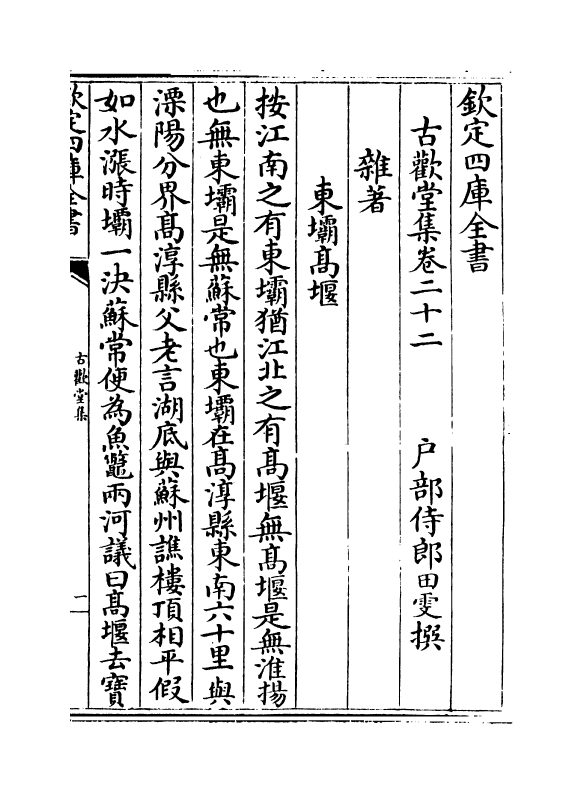 欽定四庫全書
古歡堂集卷二十二 戶部侍郎田雯撰
雜著
東壩髙堰
按江南之有東壩猶江北之有髙堰無髙堰是無淮揚
也無東壩是無蘇常也東壩在髙淳縣東南六十里與
溧陽分界髙淳縣父老言湖底與蘇州譙樓頂相平假
如水漲時壩一決蘇常便為魚鼈兩河議曰髙堰去寶
欽定四庫全書
古歡堂集